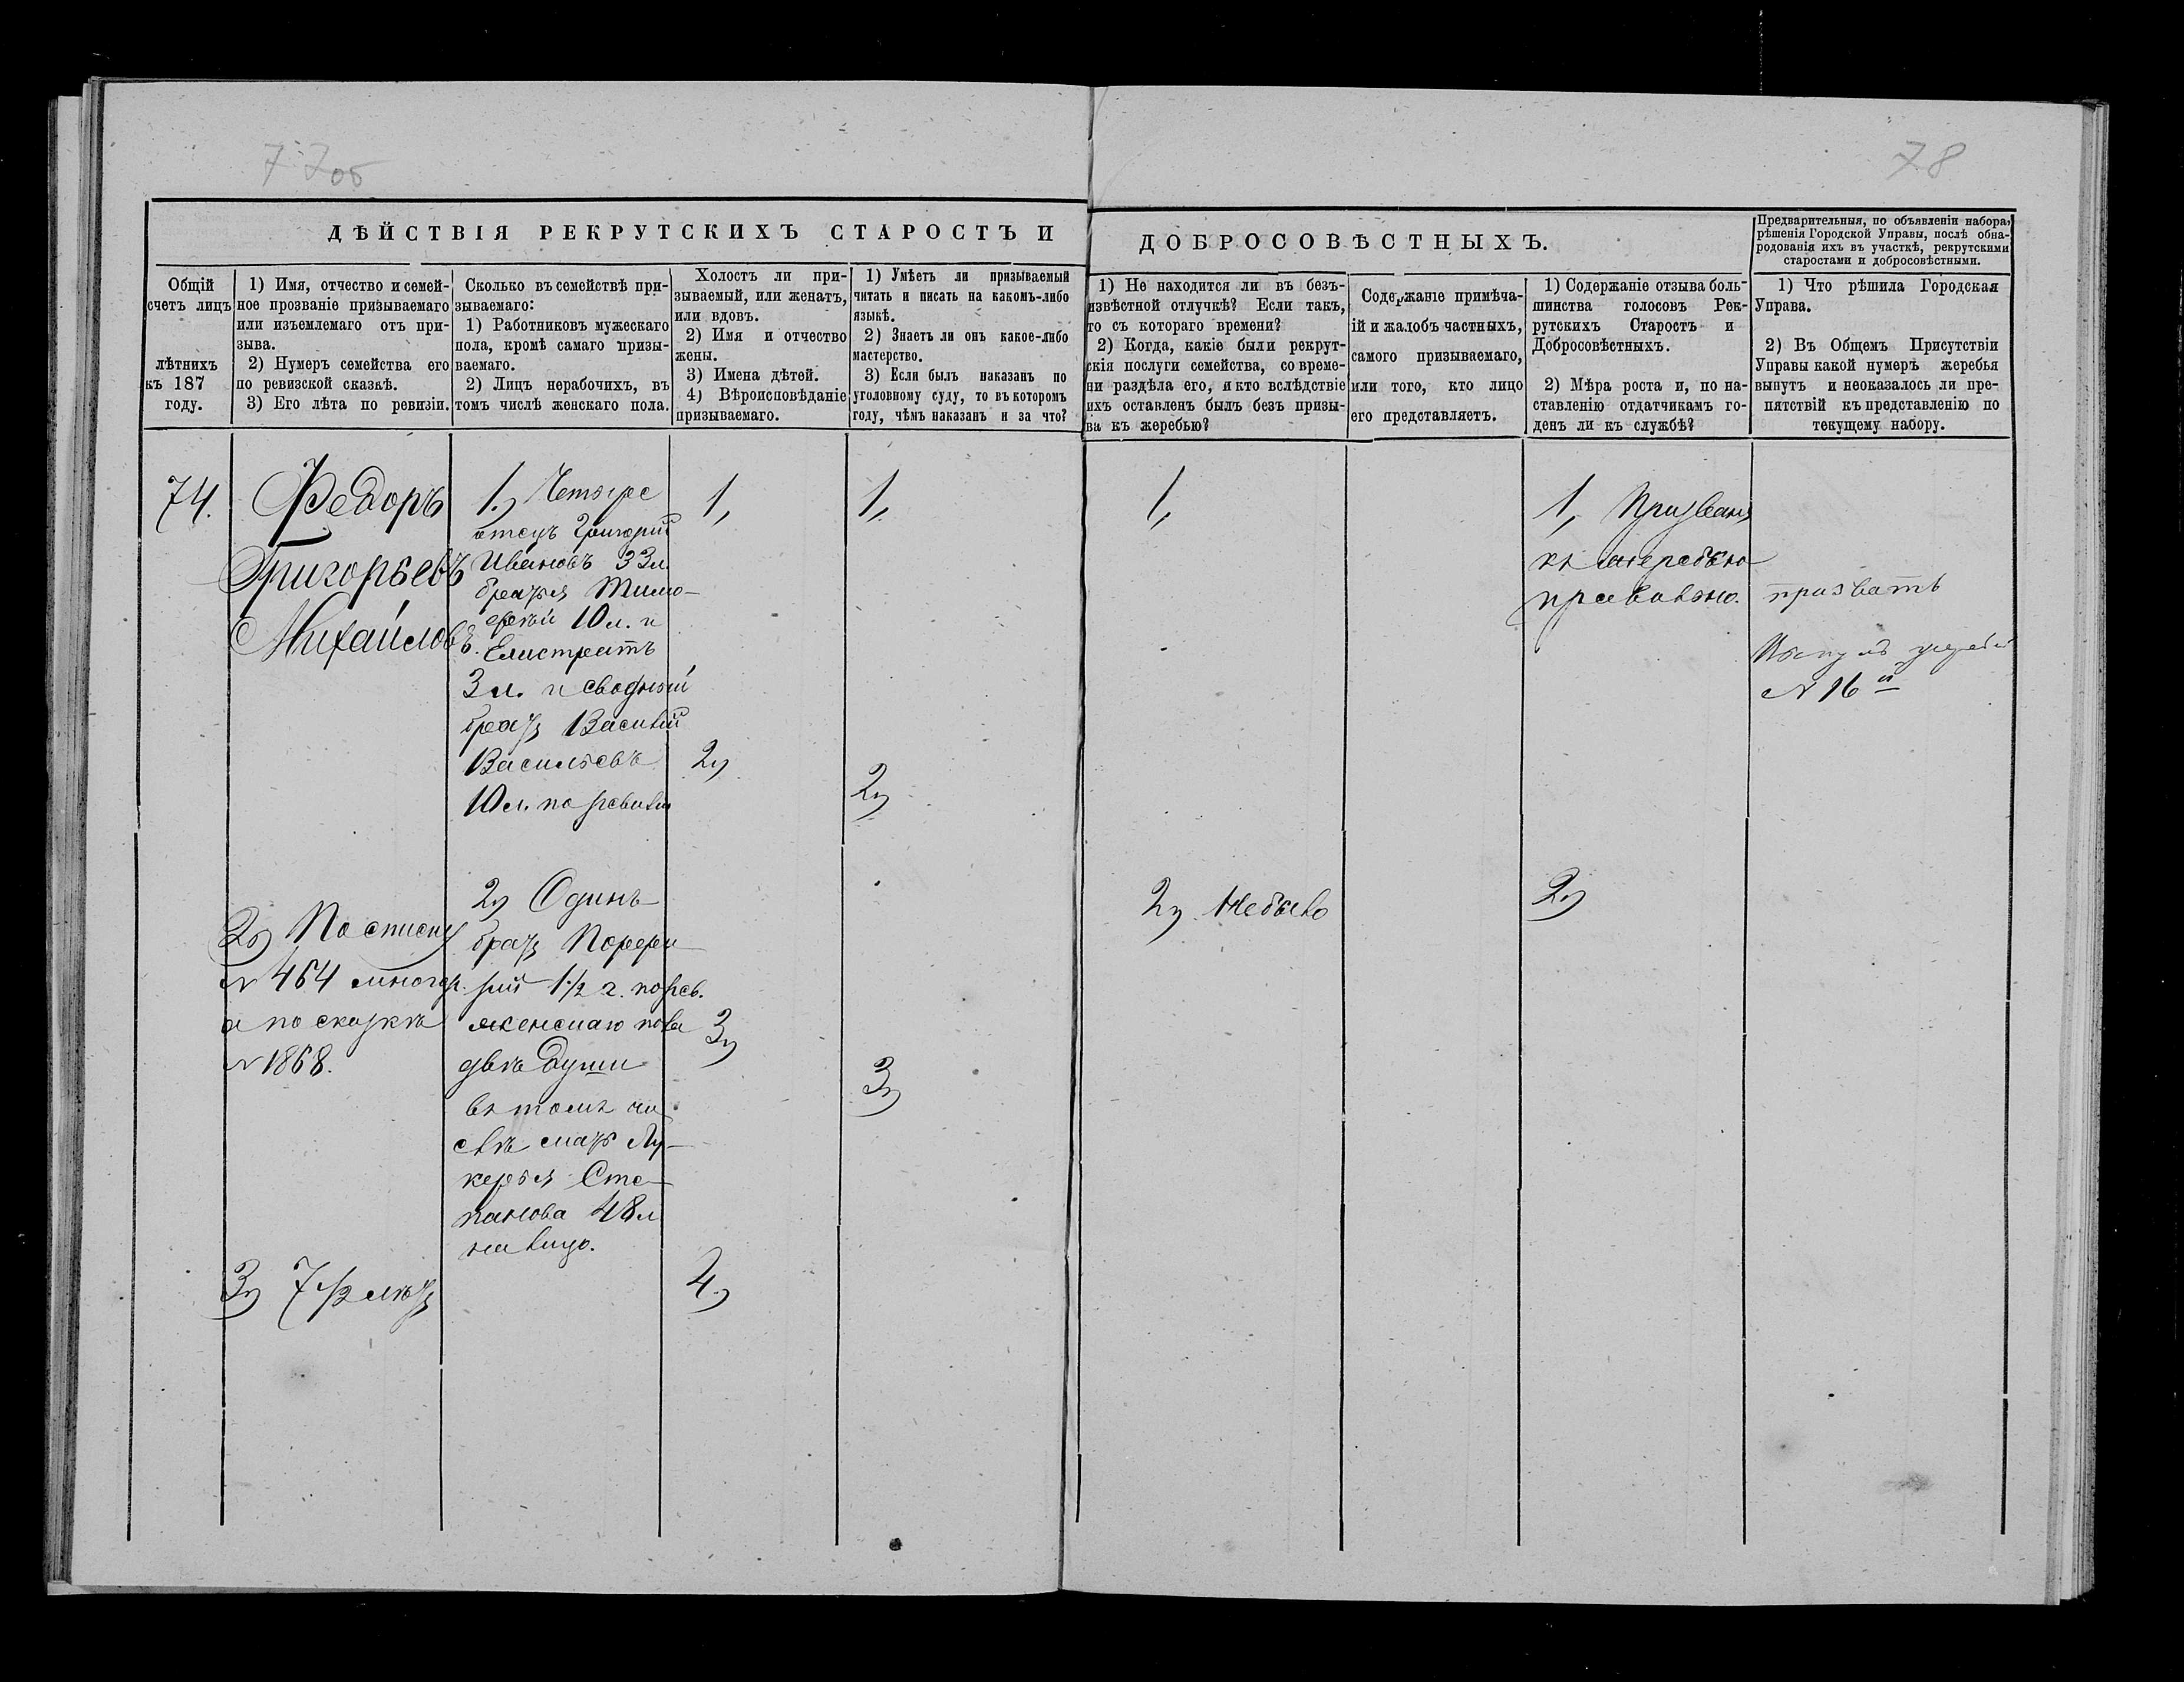 77об
78
ДѢЙСТВІЯ РЕКРУТСКИХЪ СТАРОСТЪ И
ДОБРОСОВѢСТНЫХЪ.
Предварительныя, по объявленіи набора,
рѣшенія Городской Управы, послѣ обна-
родованія ихъ въ участкѣ, рекрутскими
старостами и добросовѣстными.
Общій
счетъ лицъ
лѣтнихъ
къ 187
году.
1) Имя, отчество и семей-
ное прозваніе призываемаго
или изъемлемаго отъ при-
зыва.
2) Нумеръ семейства его
по ревизской сказкѣ.
3) Его лѣта по ревизіи.
Сколько въ семействѣ при-
зываемаго:
1) Работниковъ мужескаго
пола, кромѣ самаго призы-
ваемаго.
2) Лицъ нерабочихъ, въ
томъ числѣ женскаго пола.
Холостъ ли при-
зываемый, или женатъ,
или вдовъ.
2) Имя и отчество
жены.
3) Имена дѣтей.
4) Вѣроисповѣданіе
призываемаго.
1) Умѣетъ ли призываемый
читать и писать на какомъ-либо
языкѣ.
2) Знаетъ ли онъ какое-либо
мастерство.
3) Если былъ наказанъ по
уголовному суду, то въ которомъ
году, чѣмъ наказанъ и за что?
1) Не находится ли въ безъ-
извѣстной отлучкѣ? Если такъ,
то съ котораго времени?
2) Когда, какіе были рекрут-
скія послуги семейства, со време-
ни раздѣла его, и кто вслѣдствіе
ихъ оставленъ былъ безъ призы-
ва къ жеребью?
Содержаніе примѣча-
ій и жалобъ частныхъ,
самого призываемаго,
или того, кто лицо
его представляетъ.
1) Содержаніе отзыва боль-
шинства голосовъ Рек-
рутскихъ Старостъ и
Добросовѣстныхъ.
2) Мѣра роста и, по на-
ставленію отдатчикамъ го-
денъ ли къ службѣ?
1) Что рѣшила Городская
Управа.
2) Въ Общемъ Присутствіи
Управы какой нумеръ жеребья
вынутъ и неоказалось ли пре-
пятствій къ представленію по
текущему набору.
74.
Федоръ
Григорьевъ
Михайловъ.
2) По списку
№ 464 многор.
а по сказкѣ
№ 1868.
3) 7 1/2 лѣтъ
1) Четыре
отецъ Григорий
Ивановъ 33 л.
братья Тимо-
фей 10 л. и
Елистратъ
3 л. и сводный
братъ Василий
Васильевъ
10 л. по ревизіи
2) Одинъ
братъ Порфи
рий 1 1/2 г. по рев.
женскаго пола
двѣ души
въ томъ чи
слѣ мать Лу-
керья Сте-
панова 48 л.
на лицо.
1,
2)
3)
4)
1,
2)
3)
1,
2) Небыло
1, Призвать
къ жеребью
правильно.
2)
призвать
Вынулъ жребій
№ 16й